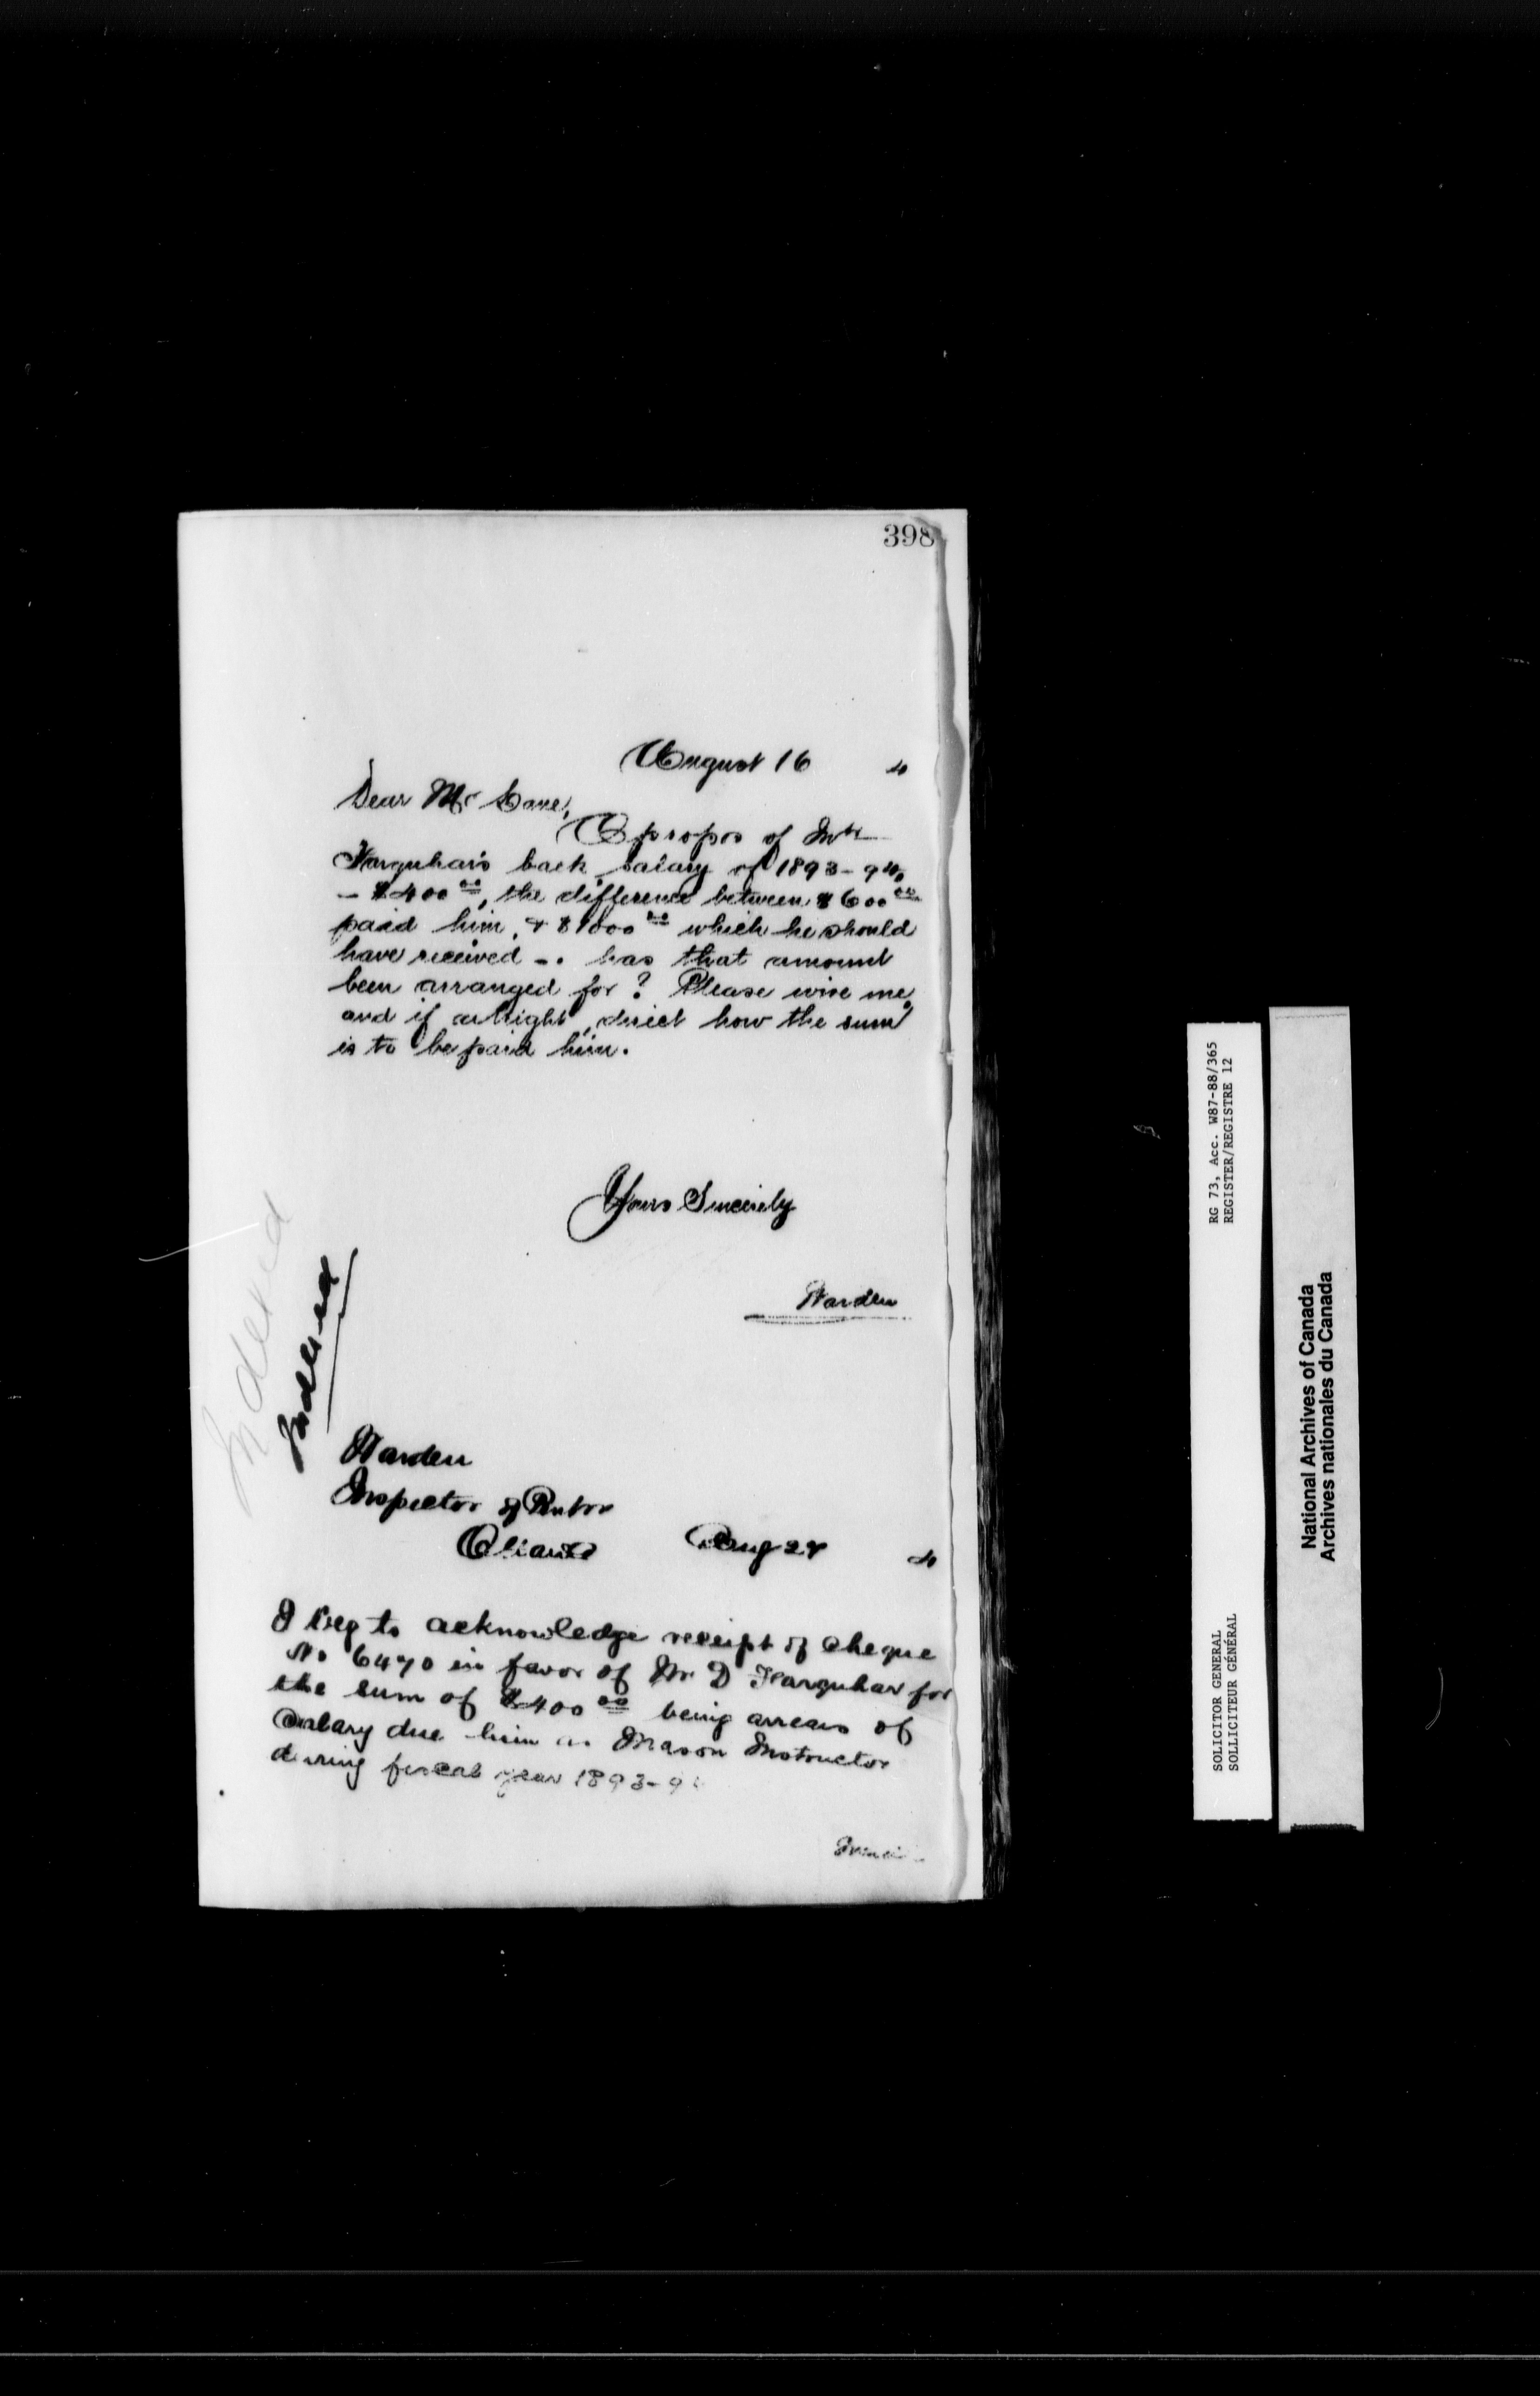 398
August 16 4
Dear Mr
Apropos of Mr
Farquhar's back salary of 1893-94,
– $400 00, the difference between $600 00
paid him, & $1000 00 which he should
have received –. has that amount
been arranged for? Please wire me,
and if alright, direct how the sum
is to be paid him.
Yours Sincerely
Warden
Indexed
Indexed
Warden
Inspector of
Ottawa Aug 4
I beg to acknowledge receipt of cheque
No 6470 in favor of Mr D Farquhar for
the sum of $400 00 being arrears of
Salary due him as Mason Instructor
during fiscal year 1893-9
RG 73, Acc. W87-88/365
REGISTER/REGISTRE 12
SOLICITOR GENERAL
SOLLICITEUR GÉNÉRAL
National Archives of Canada
Archives nationales du Canada